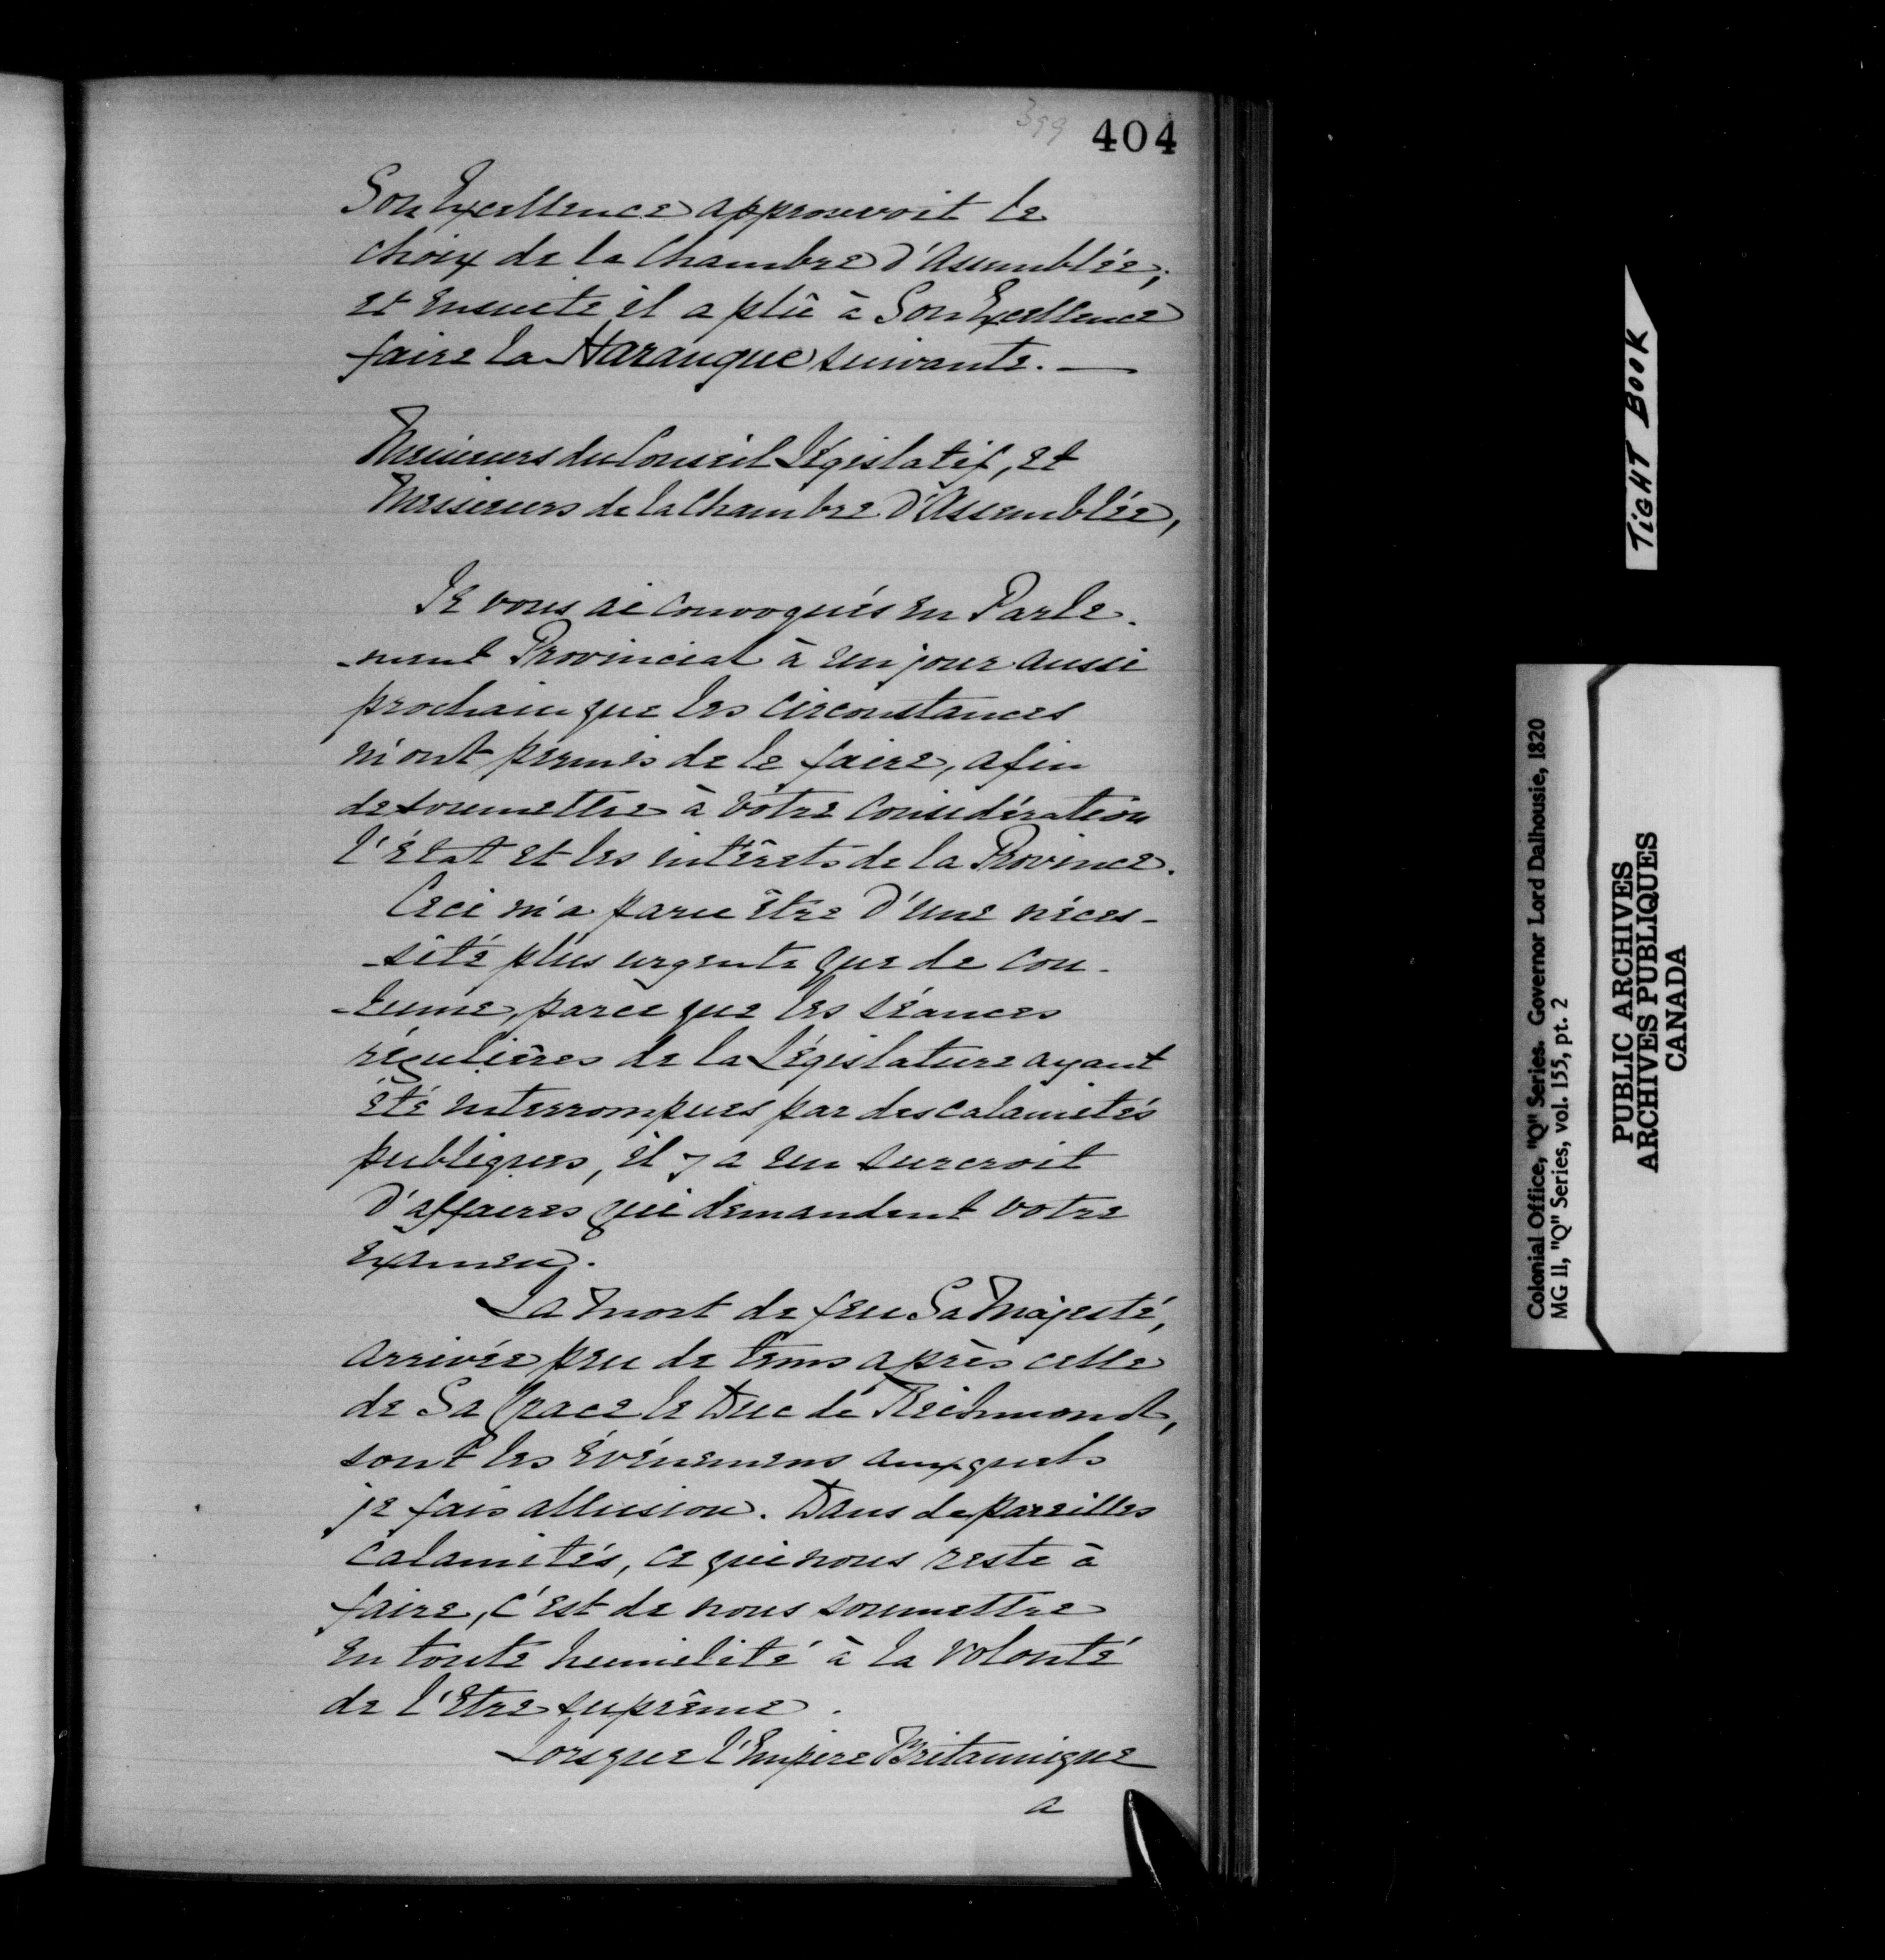 399 404
Son Excellence approuvoit le
choix de la Chambre d'Assemblée;
et ensuite il a plû à Son Excellence
faire la Harangue suivante. —
Messieurs du Conseil Législatif, et
Messieurs de la Chambre d'Assemblée,
Je vous ai convoqués en Parle-
-ment Provincial à un jour aussi
prochain que les circonstances
m'ont permis de le faire, afin
de soumettre à votre considération
l'État et les intérêts de la Province.
Ceci m'a paru être d'une néces-
-sité plus urgente que de cou-
-tume, parce que les séances
régulières de la Législature ayant
été interrompues par des calamités
publiques, il y a un surcroit
d'affaires qui demandent votre
examen.
La mort de feu Sa Majesté,
arrivée peu de tems après celle
de Sa Grace le Duc de Richmond,
sont les événemens auxquels
je fais allusion. Dans de pareilles
calamités, ce qui nous reste à
faire, c'est de nous soumettre
en toute humilité à la volonté
de l'Etre suprême.
Lorsque l'Empire Britannique
a
TIGHT BOOK
Colonial Office, "Q" Series. Governor Lord Dalhousie, 1820
MG 11, "Q" Series, vol. 155, pt. 2
PUBLIC ARCHIVES
ARCHIVES PUBLIQUES
CANADA